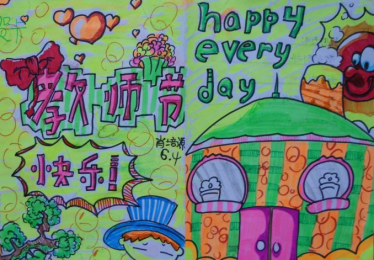 教师节
快乐!
6.4
happy
every
day